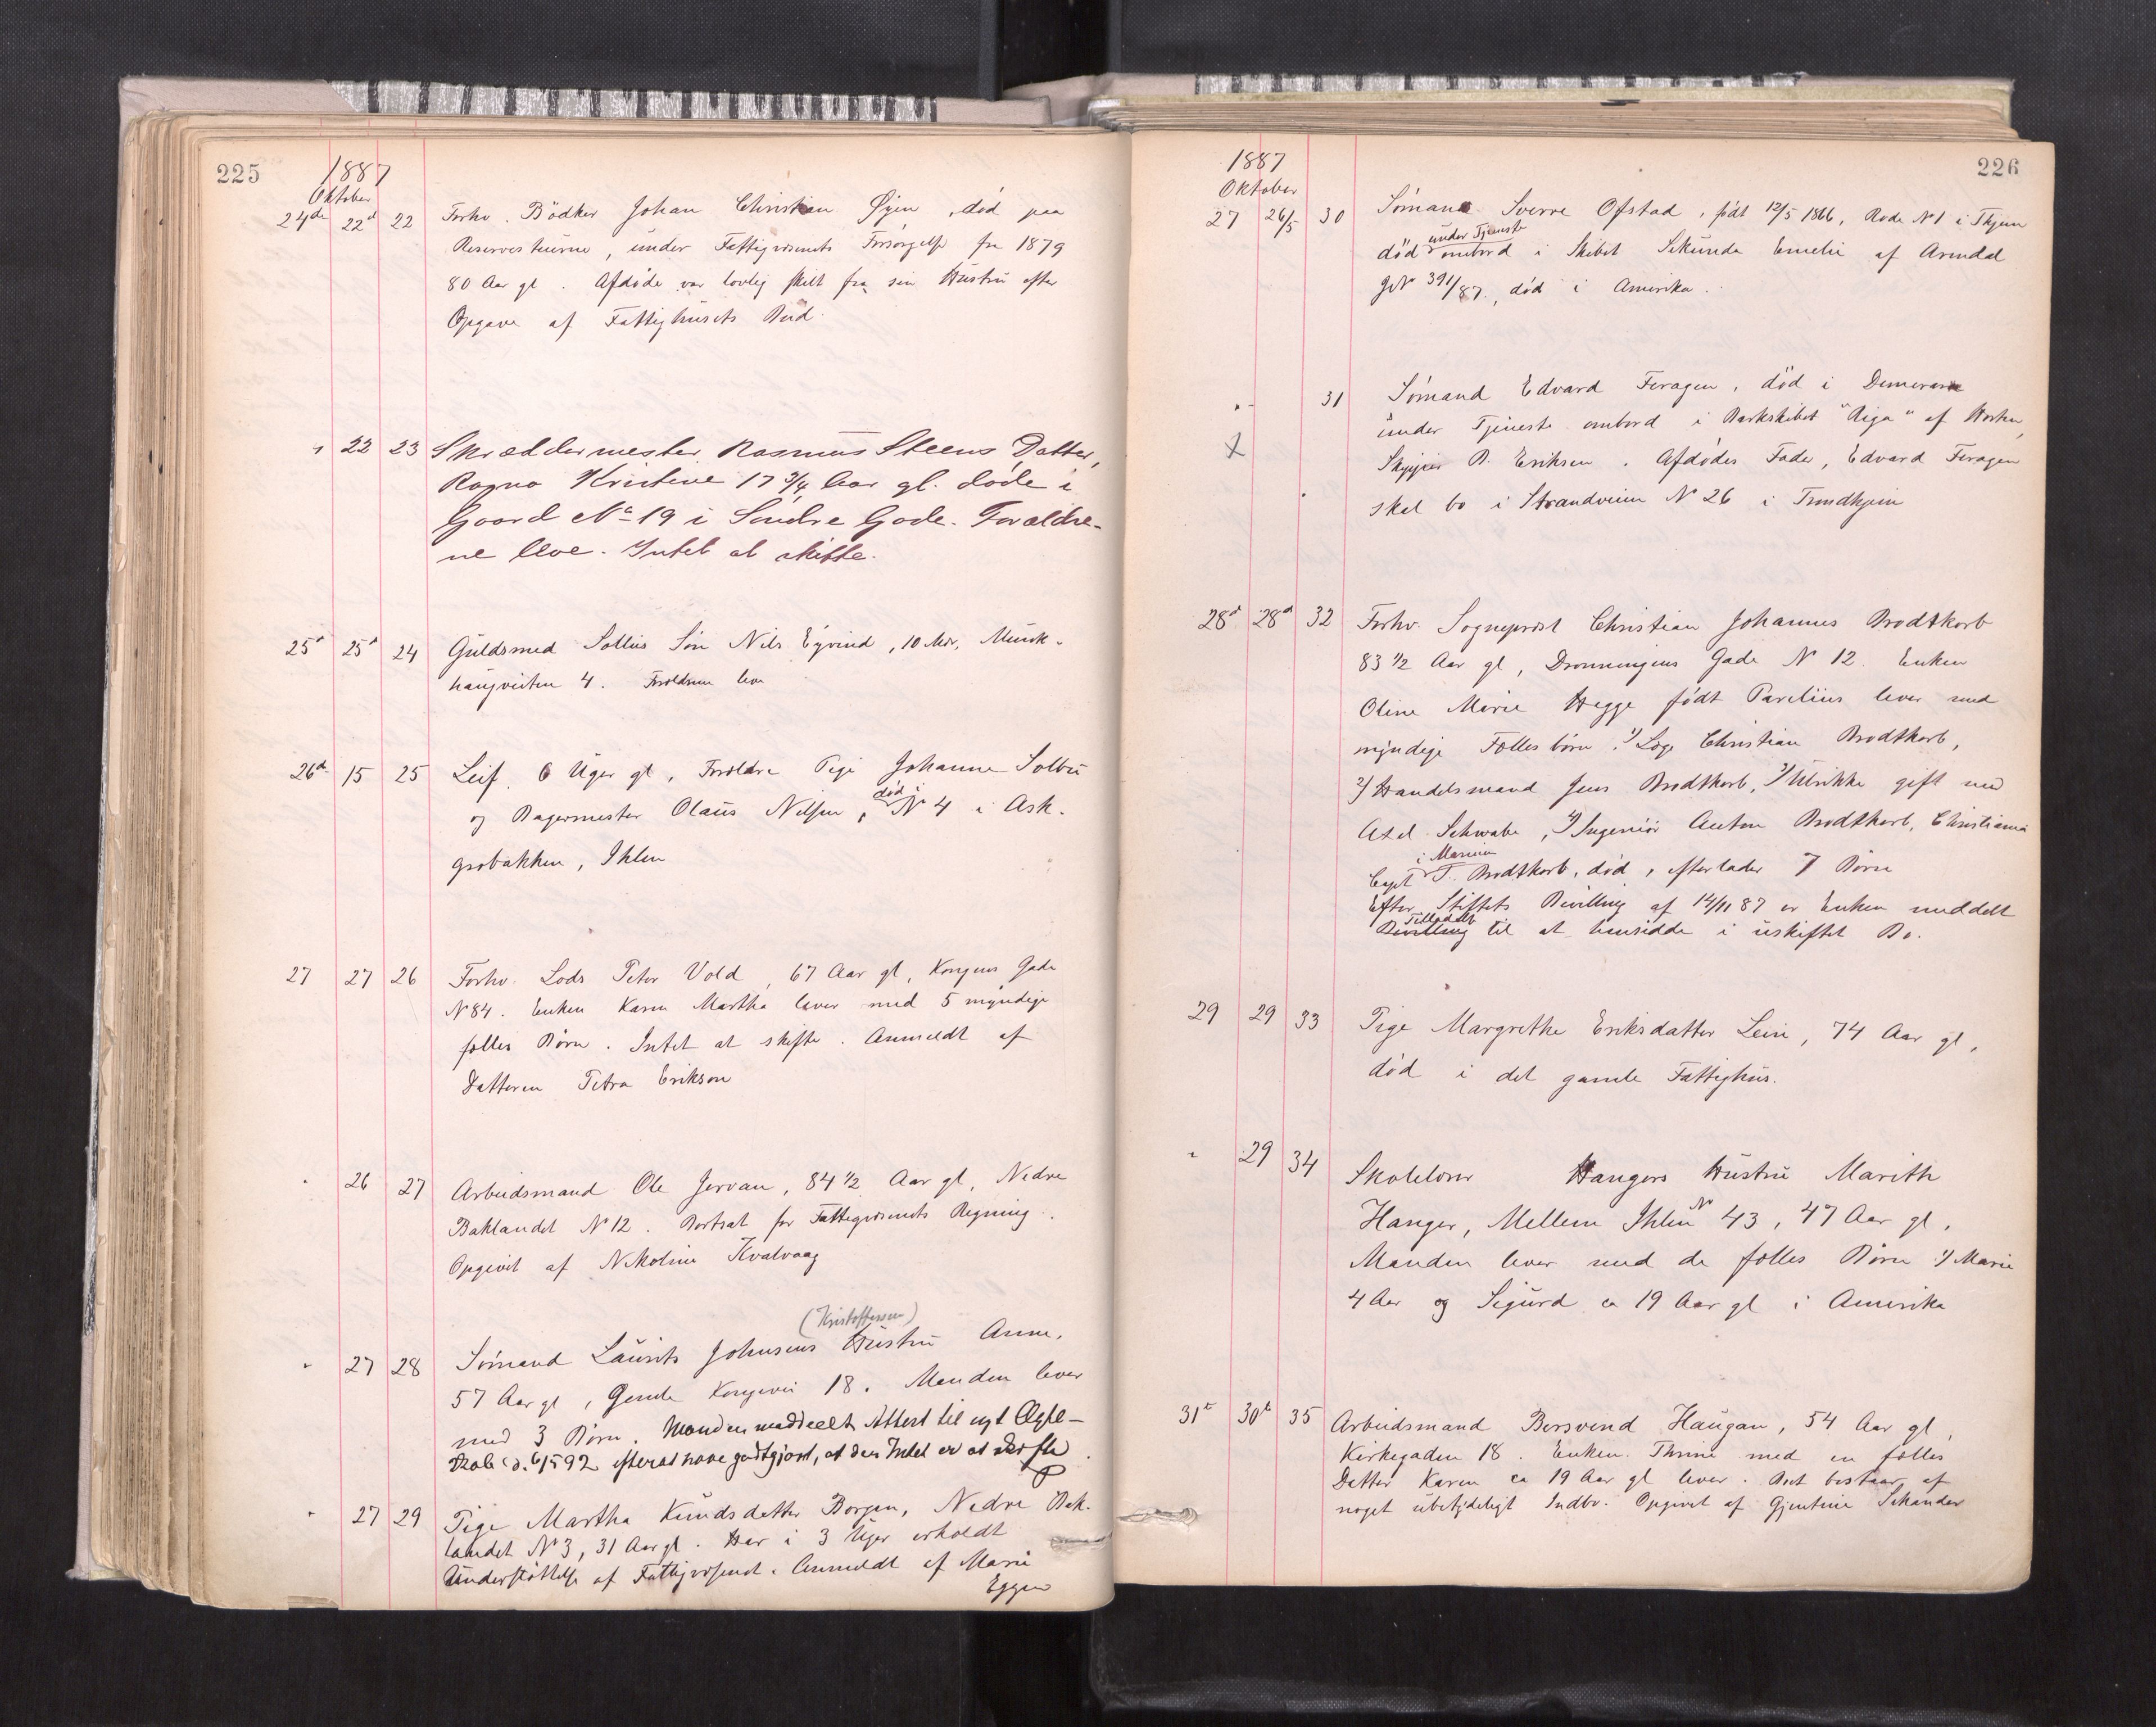 225
1887
Oktober
24de 22d 22 Forhv. Bödker Johan Christian Öyen, död paa
Reservestuerne, under Fattigvæsenets Forsørgelse fra 1879
80 Aar gl. Afdöde var lovlig skilt fra sin Hustru efter
Opgave af Fattighusets Bud.
" 22 23 Skræddermester Rasmus Steens Datter,
Ragna Kristine 17 3/4 Aar gl. døde i
Gaard No 19 i Søndre Gade. Forældre-
ne leve. Intet at skifte.
25d 25d 24 Guldsmed Sollius Sön Nils Eyvind, 10 Mdr, Munk-
haugveiten 4. Forældrene leve
26d 15 25 Leif 6 Uger gl, Forældre Pige Johanne Solbu
og Bagermester Olaus Nilsen, död i No 4 i Ask-
grobakken, Ihlen
27 27 26 Forhv. Lods Peter Vold, 67 Aar gl, Kongens Gade
No 84. Enken Karen Martha lever med 5 myndige
fælles Börn. Intet at skifte. Anmeldt af
Datteren Petra Erikson
" 26 27 Arbeidsmand Ole Jervan, 84 1/2 Aar gl, Nedre
Baklandet No 12. Bortsat for Fattigvæsenets Regning.
Opgivet af Nikoline Kvalvaag
(Kristoffersen)
" 27 28 Sömand Laurits Johnsens Hustru Anne,
57 Aar gl, Gamle Kongevei 18. Manden lever
med 3 Börn. Manden meddeelt Attest til nyt Ægte-
skab d. 6/5 92 efterat have godtgjort, at der Intet er at skifte.
" 27 29 Pige Martha Knudsdatter Borgen, Nedre Bak-
landet No 3, 31 Aar gl. Har i 3 Uger erholdt
Understöttelse af Fattigvæsenet. Anmeldt af Marie
Eggen
226
1887
Oktober
27 26/5 30 Sömand Sverre Ofstad, födt 12/5 1866, Rode No 1 i Thjem
död under Tjeneste ombord i Skibet Sekunda Emelie af Arendal
JNo 391/87, död i Amerika.
"- 31 Sömand Edvard Feragen, död i Demerara
under Tjeneste ombord i Barkskibet "Riga" af Horten,
Skipper B. Eriksen. Afdödes Fader, Edvard Feragen
skal bo i Strandveien No 26 i Trondhjem
28d 28d 32 Forhv. Sogneprest Christian Johannes Brodtkorb
83 1/2 Aar gl, Dronningens Gade No 12. Enken
Oline Marie Hegge födt Parelius lever med
myndige Fælles börn: 1/ Læge Christian Brodtkorb,
2/ Handelsmand Jens Brodtkorb, 3/ Ulrikke gift med
Axel Schwabe, 4/ Ingeniör Anton Brodtkorb, Christiania
Capt i Marinen T. Brodtkorb, död, efterlader 7 Börn
Efter Stiftets Bevilling af 14/11 87 er Enken meddelt
Tilladelse
Bevilling til at hensidde i uskiftet Bo.
29 29 33 Pige Margrethe Eriksdatter Lein, 74 Aar gl,
död i det gamle Fattighus.
" 29 34 Skolelærer Hangers Hustru Marith
Hanger, Mellem Ihlen No 43, 47 Aar gl.
Manden lever med de fælles Börn 1/ Marie
4 Aar og Sigurd ca 19 Aar gl i Amerika
31te 30te 35 Arbeidsmand Bersvend Haugan, 54 Aar gl,
Kirkegaden 18. Enken Thrine med en fælles
Datter Karen ca 19 Aar gl lever. Boet bestaar af
noget ubetydeligt Indbo. Opgivet af Gjentine Sekander